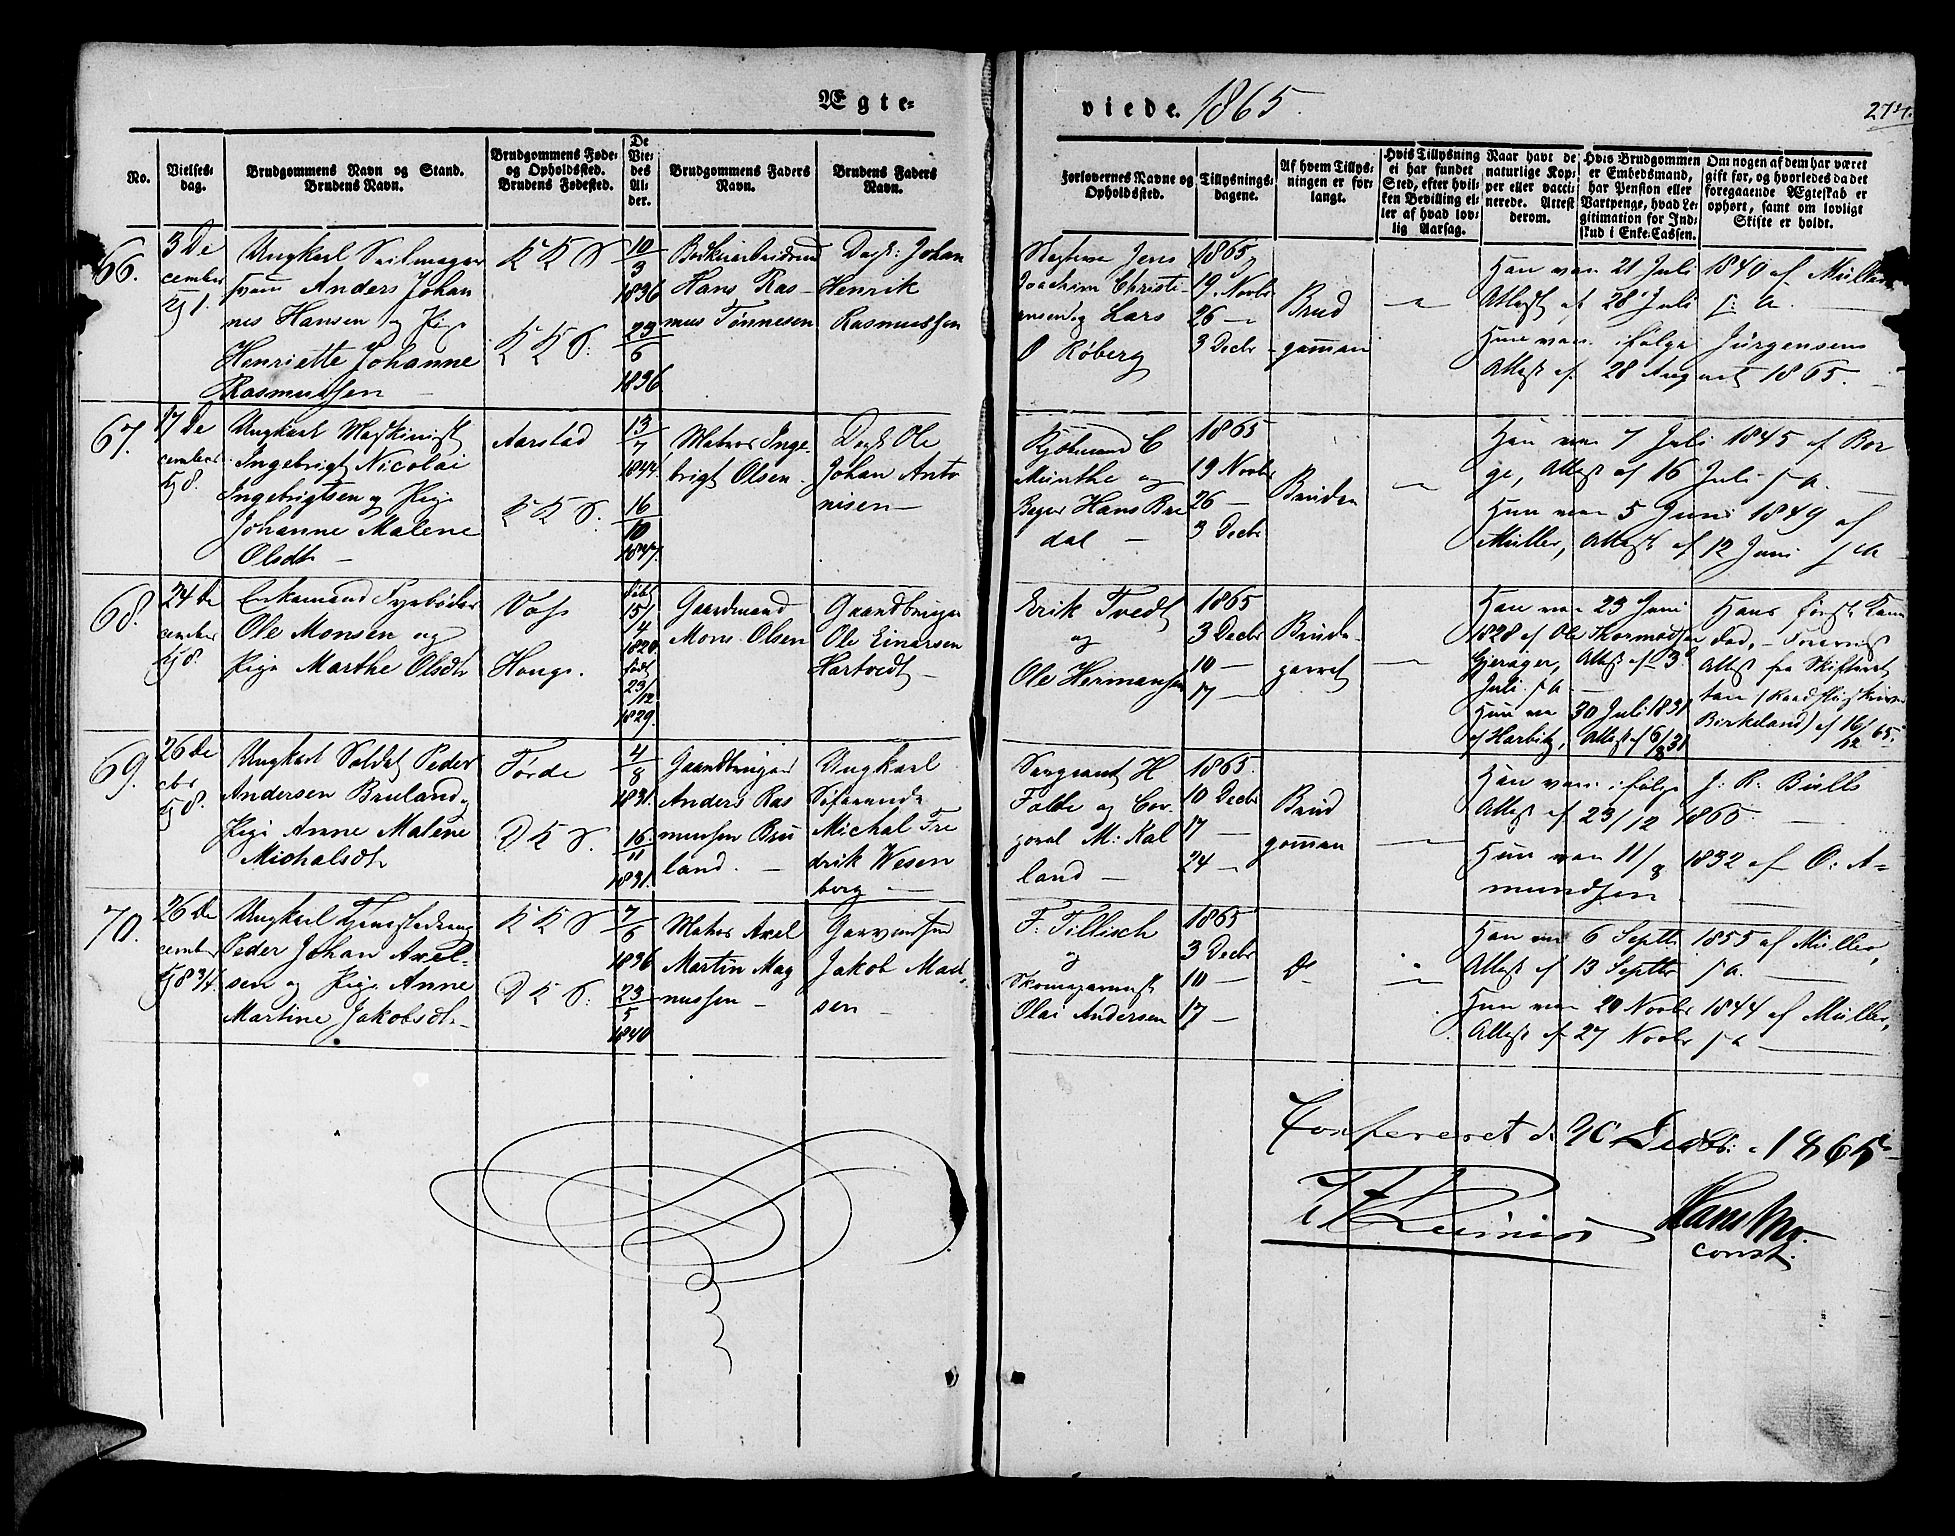 Ægte-
viede. 1865.
274.
No.
Vielses-
dag.
Brudgommens Navn og Stand.
Brudens Navn.
Brudgommens Føde-
og Opholdssted.
Brudens Fødested.
De
Vie-
des
Al-
der.
Brudgommens Faders
Navn.
Brudens Faders
Navn.
Forlovernes Navne og
Opholdssted.
Tillysnings-
dagene.
Af hvem Tillys-
ningen er for-
langt.
Hvis Tillysning
ei har fundet
Sted, efter hvil-
ken Bevilling el-
ler af hvad lov-
lig Aarsag.
Naar havt de
naturlige Kop-
per eller vacci-
nerede. Attest
derom.
Hvis Brudgommen
er Embedsmand,
har Pension eller
Vartpenge, hvad Le-
gitimation for Ind-
skud i Enke-Cassen.
Om nogen af dem har været
gift før, og hvorledes da det
foregaaende Ægteskab er
ophørt, samt om lovligt
Skifte er holdt.
66.
3 De
cember
Kl 1.
Ungkarl Seilmager
svenn Anders Johan
nes Hansen og Pige
Henriette Johanne
Rasmussen
K K S
K K S.
10
3
1836
23
6
1836
Hans Ras-
mus Tønnesen
Johan
Henrik
Rasmussen
Jens
Joachim Christi-
ansen og Lars
O Røberg
1865
19. Novbr
26 —
3 Decbr
Brud
gommen
Han vac. 21 Juli 1840 af Müller
Attest af 28 Juli s. A.
Hun vac. ifølge Jürgensens
Attest af 28 August 1865.
67.
17 De
cember
Kl 8.
Ungkarl Maskinist
Ingebrigt Nicolai
Ingebrigtsen og Pige
Johanne Malene
Olsdt
Aarstad
K K S.
13
7
1844
16
10
Matros Inge
brigt Olsen
Ole
Johan Anto
nisen
Kjøbmand C
Münthe og
Hans Bre
dal
1865
19 Novbr
26 —
3 Decbr
Bruden
Han vac 7 Juli 1845 af Bor
ge, Attest af 16 Juli s A.
Hun vac 5 Juni 1849 af
Müller, Attest af 12 Juni s A
68.
24 De
cember
Kl 8.
Enkemand
Ole Monsen og
Pige Marthe Olsdt
Voss
Houg.
født
15/
4
1820
født
23/
12
1829.
Gaardmand
Mons Olsen
Gaardbruger
Ole Einarsen
Hartvedt
Erik Tvedt
og
Ole Hermansen
1865
3 Decbr
10 —
17 —
Brude
parret
Han vac 23 Juni
1828 af Ole Thormodsen
Gjerager, Attest af 3d
Juli s A.
Hun vac 30 Juli 1831
af Harbitz, Attest af 6/8 31
Hans første Kone
død,
Attest fra Skifteret
ten
Birkeland) af 16/12 65.
69.
26 De
cbr
Kl 8.
Ungkarl Soldat Peder
Andersen Bruland og
Pige Anne Malene
Michalsdt
Førde
D K S.
4
8
1831.
16
11
1831.
Gaardbruger
Anders Ras
mussen Bru
land.
Ungkarl
Søfarende
Michal Fre
drik Wesen
berg
Sergeant H
Falde og Cor
poral M: Kal
land
1865.
10 Decbr
17 —
24 —
Brud
gommen
Han vac. ifølge J. R. Bulls
Attest af 23/12 1865.
Hun vac 11/8 1832 af O: A-
mundsen
70.
26 De
cember
Kl 8 3/4.
Ungkarl
Peder Johan Axel-
sen og Pige Anne
Martine Jakobsdt.
K K S
D K S.
7
6
1836
23
5
1840
Matros Axel
Martin Mag
nussen
Garversvend
Jakob Mad
sen
F. Tillisch
og
Skomagermest
Olai Andersen
1865
3 Decbr
10 —
17 —
Do
Han vac 6 Septbr 1855 af Müller,
Attest af 13 Septbr s A.
Hun vac 20 Novbr 1844 af Müller,
Attest af 27 Novbr s A
Confereret d. Decbr. 1865
Hans Mo.
const.